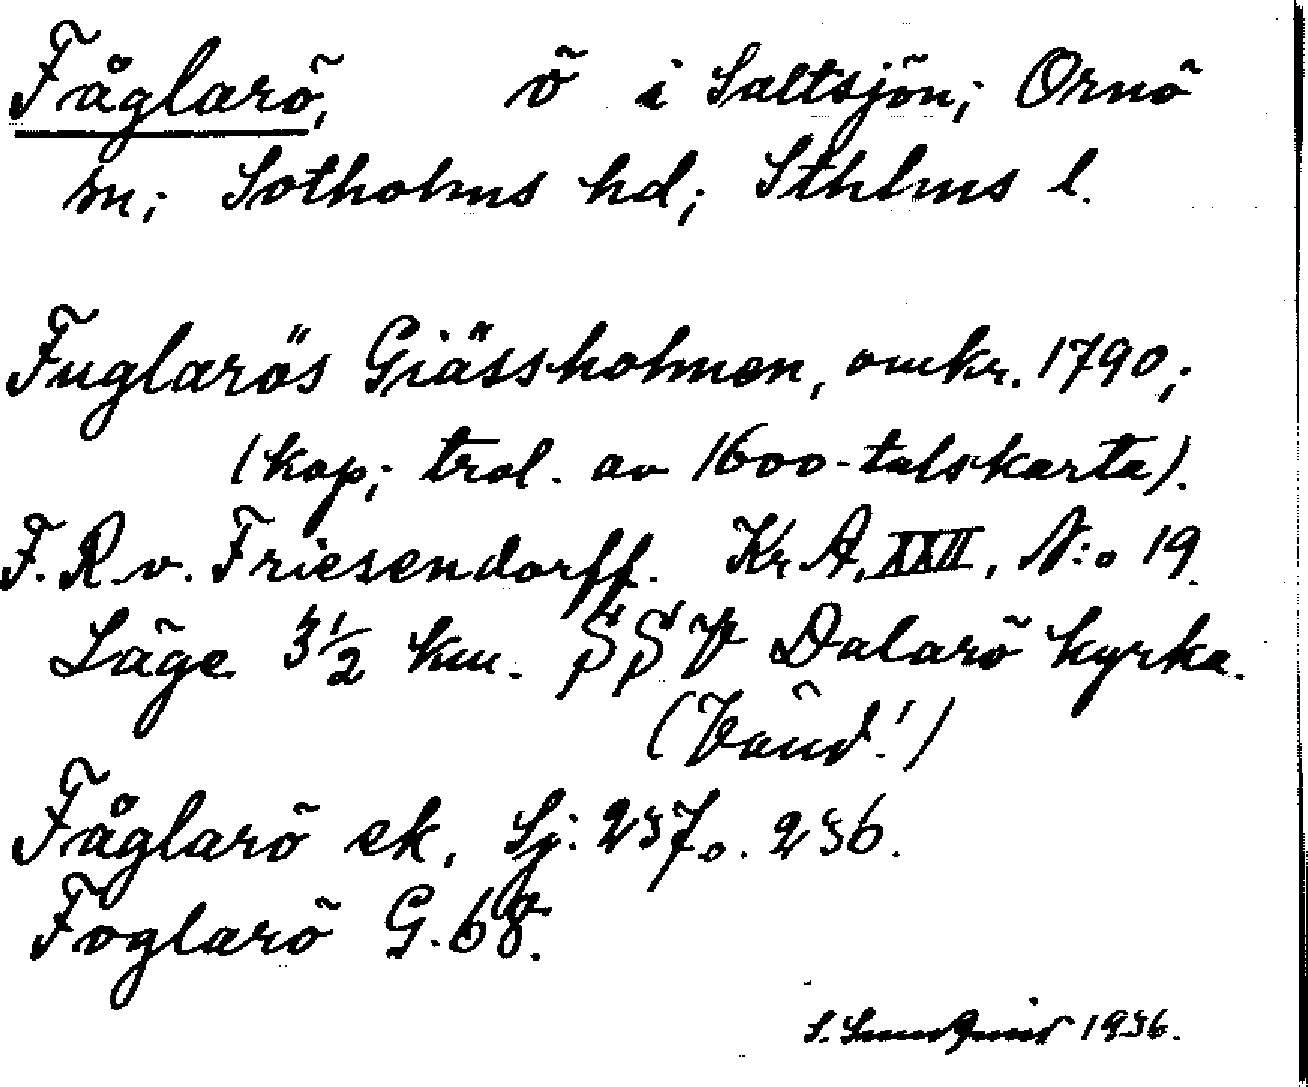 Fåglarö, ö i Saltsjön; Ornö
sn; Sotholms hd; Sthlms l.
Fuglarös Giässholmen, omkr. 1790;
(kop; trol. av 1600-talskarta).
F. R. v. Friesendorff. Kr. A. XXII, N:o 19.
Läge 3 1/2 km. SSV Dalarö kyrka.
(Vänd!)
Fåglarö ek. Sj: 237 o. 236.
Foglarö G. 68.
S. 1936.